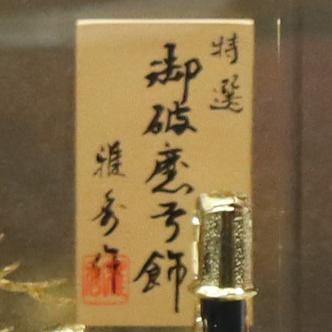 特選
御破魔弓飾
雅秀作